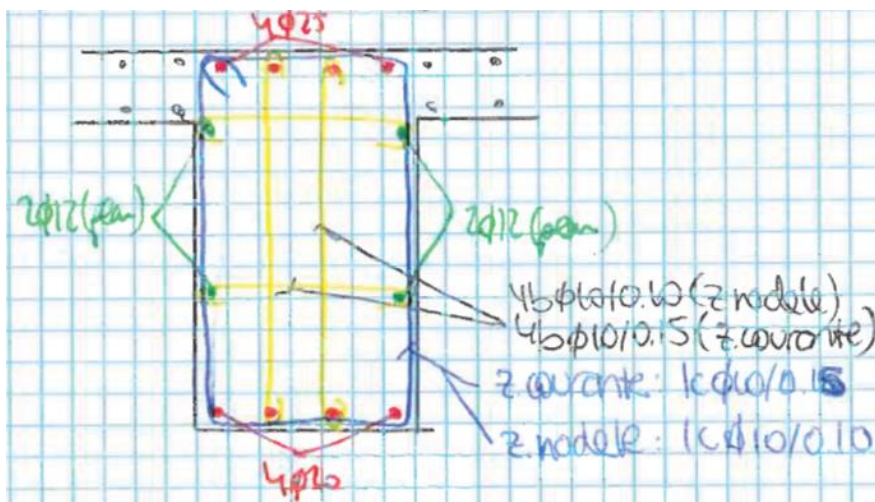 4φ25
2φ12 (peau)
2φ12 (peau)
4bφ10/0.10 (z.nodale)
4bφ10/0.15 (z.courante)
z.courante: 1cφ10/0.15
z.nodale: 1cφ10/0.10
4φ20